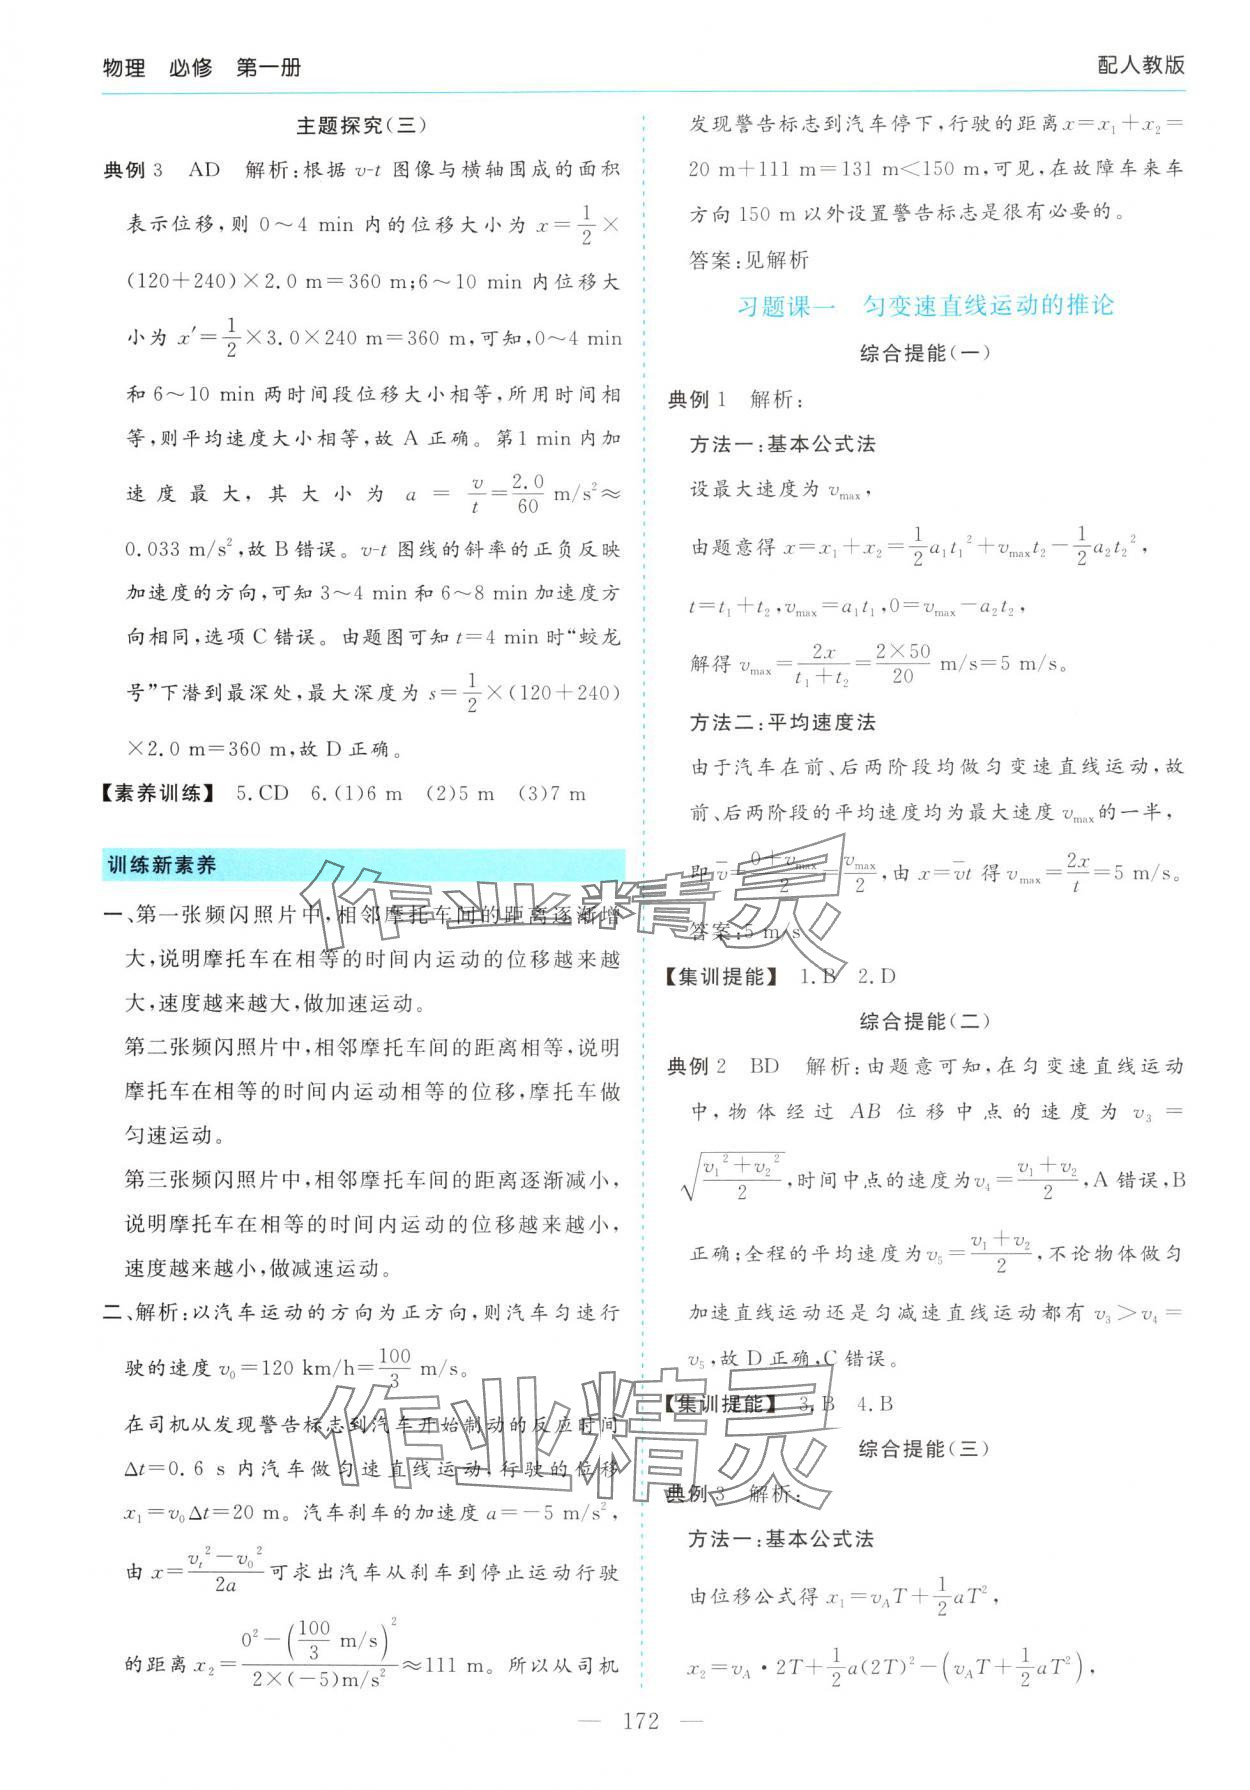 物理 必修 第一册
配人教版
主题探究(三)
典例 3 AD 解析:根据 v-t 图像与横轴围成的面积
表示位移,则 0～4 min 内的位移大小为 x=1/2×
(120+240)×2.0 m=360 m;6～10 min 内位移大
小为 x′=1/2×3.0×240 m=360 m,可知,0～4 min
和 6～10 min 两时间段位移大小相等,所用时间相
等,则平均速度大小相等,故 A 正确。第1 min 内加
速度最大,其大小为 a=v/t=2.0/60 m/s²≈
0.033 m/s²,故 B 错误。v-t 图线的斜率的正负反映
加速度的方向,可知 3～4 min 和 6～8 min 加速度方
向相同,选项 C 错误。由题图可知 t=4 min 时“蛟龙
号”下潜到最深处,最大深度为 s=1/2×(120+240)
×2.0 m=360 m,故 D 正确。
【素养训练】 5.CD 6.(1)6 m (2)5 m (3)7 m
训练新素养
一、第一张频闪照片中,相邻摩托车间的距离逐渐增
大,说明摩托车在相等的时间内运动的位移越来越
大,速度越来越大,做加速运动。
第二张频闪照片中,相邻摩托车间的距离相等,说明
摩托车在相等的时间内运动相等的位移,摩托车做
匀速运动。
第三张频闪照片中,相邻摩托车间的距离逐渐减小,
说明摩托车在相等的时间内运动的位移越来越小,
速度越来越小,做减速运动。
二、解析:以汽车运动的方向为正方向,则汽车匀速行
驶的速度 v₀=120 km/h=100/3 m/s。
在司机从发现警告标志到汽车开始制动的反应时间
Δt=0.6 s 内汽车做匀速直线运动,行驶的位移
x₁=v₀Δt=20 m。汽车刹车的加速度 a=-5 m/s²,
由 x=(vₜ²-v₀²)/2a 可求出汽车从刹车到停止运动行驶
的距离 x₂=(0²-(100/3 m/s)²)/(2×(-5)m/s²)≈111 m。所以从司机
发现警告标志到汽车停下,行驶的距离 x=x₁+x₂=
20 m+111 m=131 m<150 m,可见,在故障车来车
方向 150 m 以外设置警告标志是很有必要的。
答案:见解析
习题课一 匀变速直线运动的推论
综合提能(一)
典例 1 解析:
方法一:基本公式法
设最大速度为 vmax,
由题意得 x=x₁+x₂=1/2a₁t₁²+vmaxt₂-1/2a₂t₂²,
t=t₁+t₂,vmax=a₁t₁,0=vmax-a₂t₂,
解得 vmax=2x/(t₁+t₂)=(2×50)/20 m/s=5 m/s。
方法二:平均速度法
由于汽车在前、后两阶段均做匀变速直线运动,故
前、后两阶段的平均速度均为最大速度 vmax的一半,
即 v̄=(0+vmax)/2=vmax/2,由 x=v̄t 得 vmax=2x/t=5 m/s。
答案:5 m/s
【集训提能】 1.B 2.D
综合提能(二)
典例 2 BD 解析:由题意可知,在匀变速直线运动
中,物体经过 AB 位移中点的速度为 v₃=
√((v₁²+v₂²)/2),时间中点的速度为v₄=(v₁+v₂)/2,A 错误,B
正确;全程的平均速度为v₅=(v₁+v₂)/2,不论物体做匀
加速直线运动还是匀减速直线运动都有 v₃>v₄=
v₅,故 D 正确,C 错误。
【集训提能】 3.B 4.B
综合提能(三)
典例 3 解析:
方法一:基本公式法
由位移公式得 x₁=vAT+1/2aT²,
x₂=vA·2T+1/2a(2T)²-(vAT+1/2aT²),
— 172 —
作业精灵
作业精灵